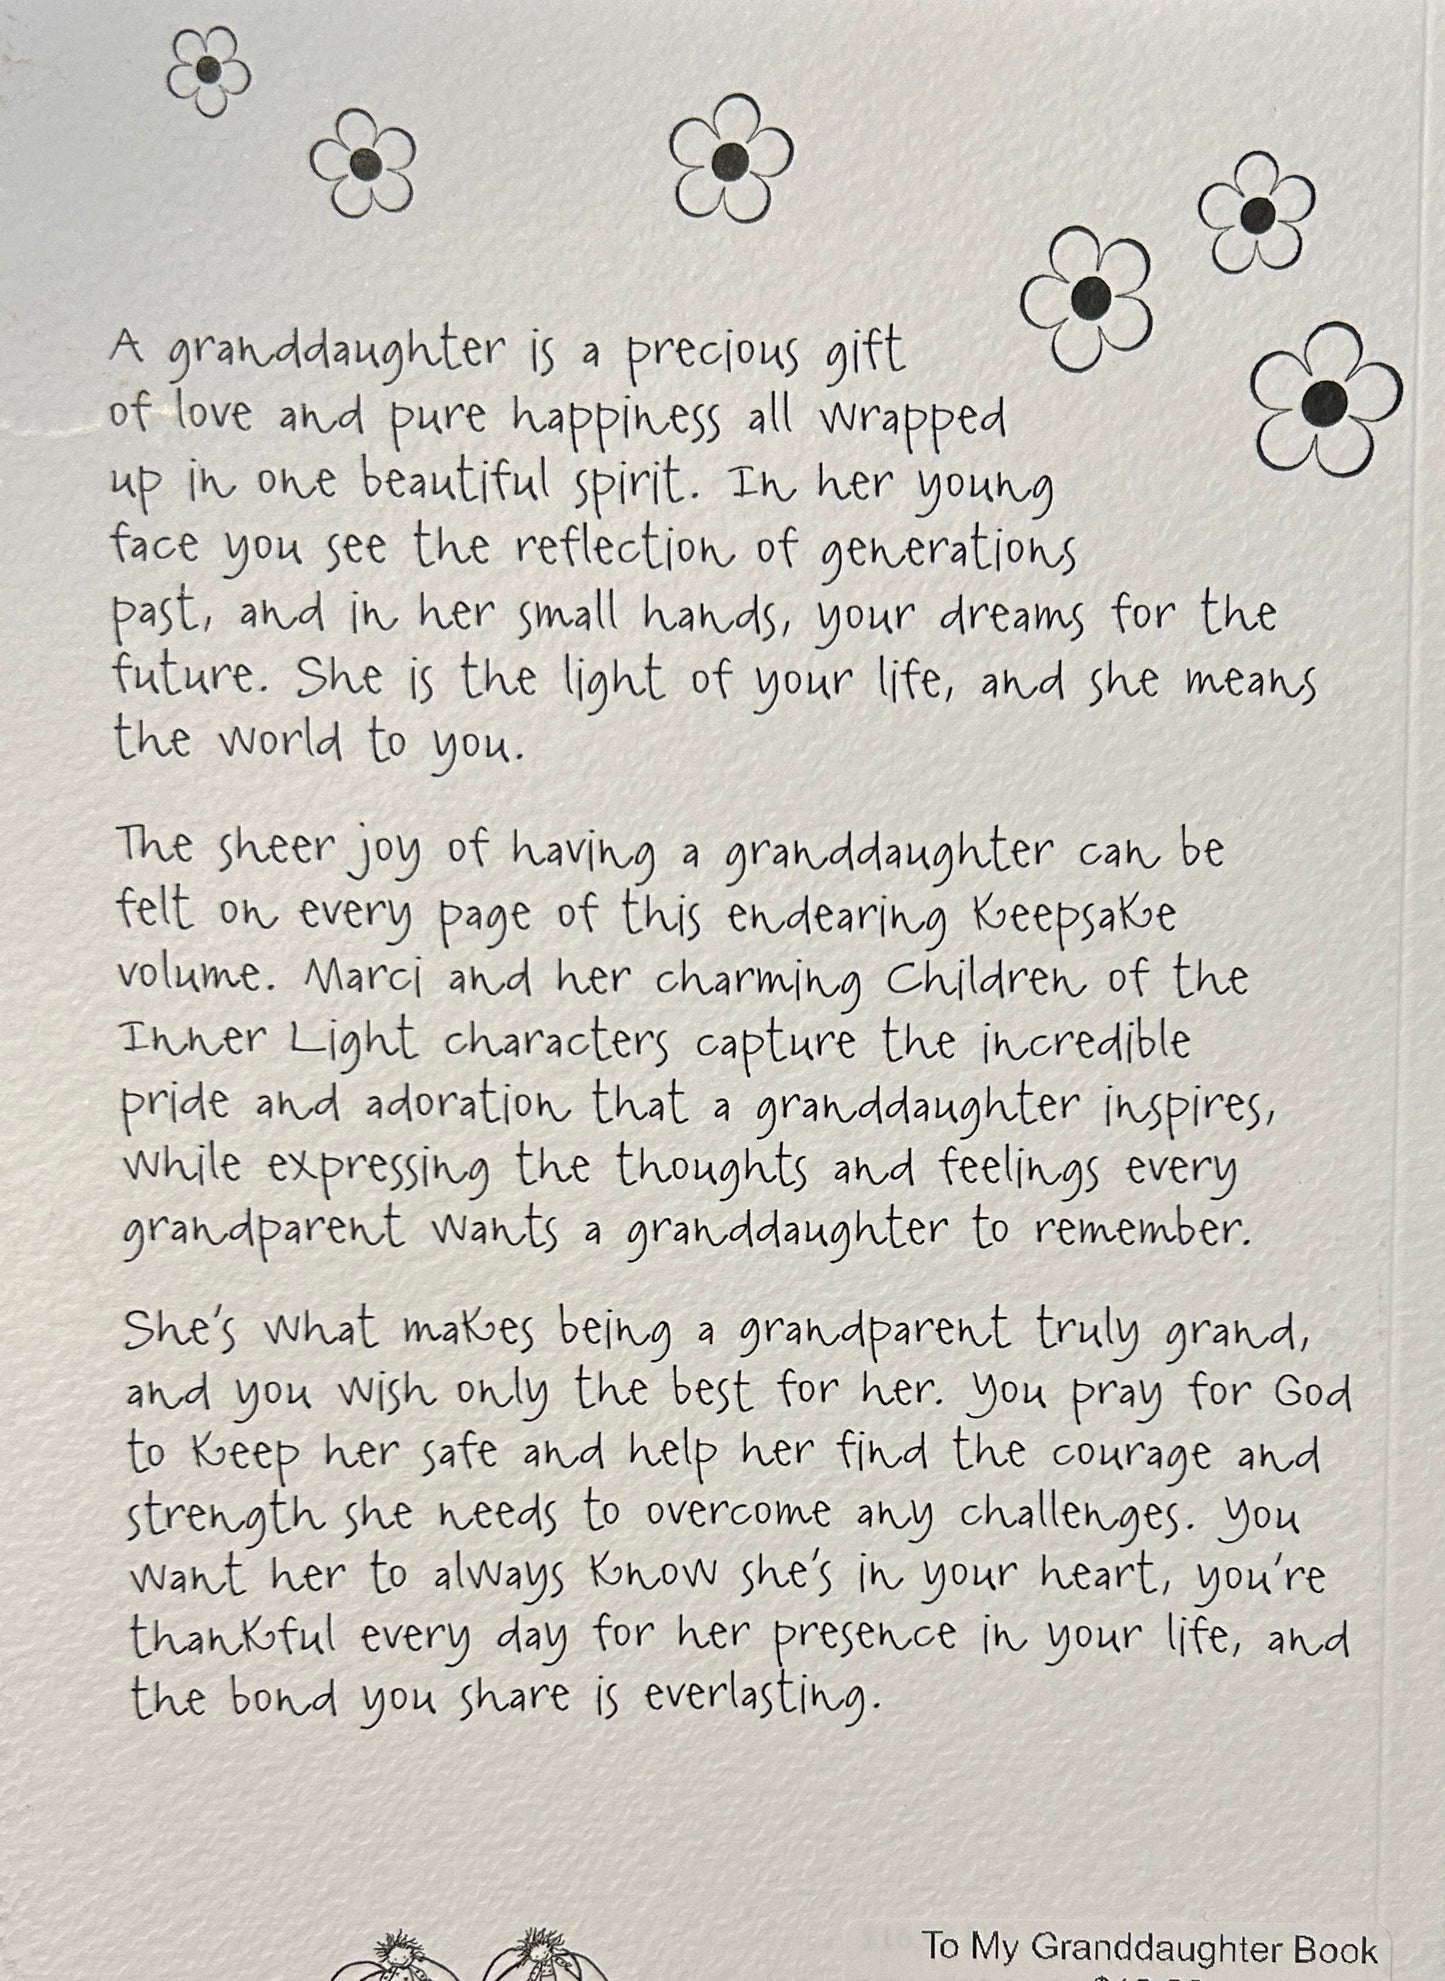 A granddaughter is a precious gift
of love and pure happiness all wrapped
up in one beautiful spirit. In her young
face you see the reflection of generations
past, and in her small hands, your dreams for the
future. She is the light of your life, and she means
the world to you.
The sheer joy of having a granddaughter can be
felt on every page of this endearing keepsake
volume. Marci and her charming Children of the
Inner Light characters capture the incredible
pride and adoration that a granddaughter inspires,
while expressing the thoughts and feelings every
grandparent wants a granddaughter to remember.
She's what makes being a grandparent truly grand,
and you wish only the best for her. You pray for God
to keep her safe and help her find the courage and
strength she needs to overcome any challenges. You
want her to always know she's in your heart, you're
thankful every day for her presence in your life, and
the bond you share is everlasting.
To My Granddaughter Book